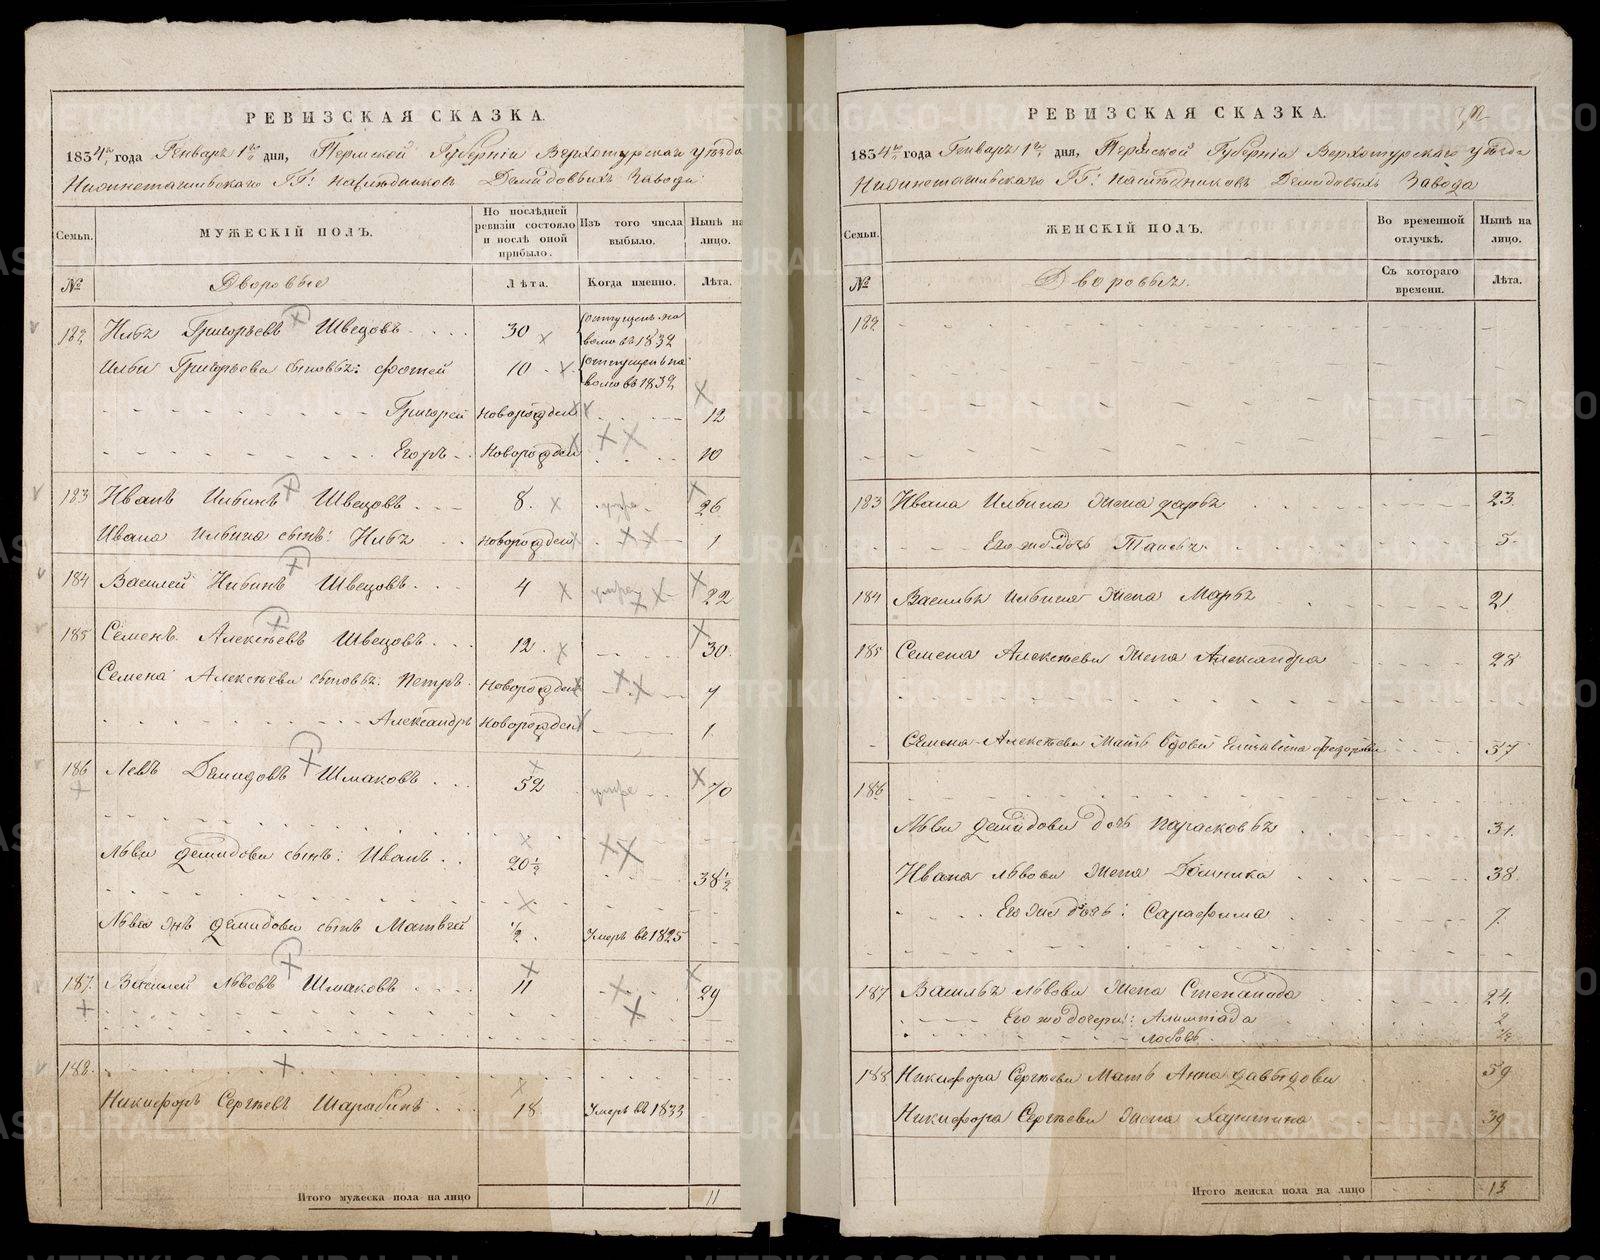 РЕВИЗСКАЯ СКАЗКА.
1834го года Генваря 1го дня, Пермской Губернiи Верхотурскаго уѣзда
Нижнетагильскаго ГГ: наслѣдниковъ Демидовыхъ Завода
Семьи.
МУЖЕСКIЙ ПОЛЪ.
По послѣдней ревизiи состояло и послѣ оной прибыло.
Изъ того числа выбыло.
Нынѣ на лицо.
№
Дворовые
Лѣта.
Когда именно.
Лѣта.
182 Илья Григорьевъ Швецовъ 30 отпущенъ на волю въ 1832
Ильи Григорьева сыновья: Фотей 10 отпущенъ на волю въ 1832
Григорей Новорожден 12
Егоръ Новорожден 10
183 Иванъ Ильинъ Швецовъ 8 26
Ивана Ильина сынъ: Илья Новорожден 1
184 Василей Ильинъ Швецовъ 4 22
185 Семенъ Алексѣевъ Швецовъ 12 30
Семена Алексѣева сыновья: Петръ Новорожден 7
Александръ Новорожден 1
186 Левъ Демидовъ Шмаковъ 52 70
Льва Демидова сынъ: Иванъ 20½ 38½
Льва жъ Демидова сынъ Матвей ½ Умеръ въ 1825
187 Василей Львовъ Шмаковъ 11 29
188
Никифоръ Сергѣевъ 18 Умеръ въ 1833
Итого мужеска пола на лицо 11
РЕВИЗСКАЯ СКАЗКА.
1834го года Генваря 1го дня, Пермской Губернiи Верхотурскаго уѣзда
Нижнетагильскаго ГГ: наслѣдниковъ Демидовыхъ Завода
Семьи.
ЖЕНСКIЙ ПОЛЪ.
Во временной отлучкѣ.
Нынѣ на лицо.
№
Дворовыя.
Съ котораго времени.
Лѣта.
182
183 Ивана Ильина жена Дарья 23
Его же дочь Таисья 5
184 Василья Ильина жена Марья 21
185 Семена Алексѣева жена Александра 28
Семена Алексѣева Мать вдова Елизавета Федорова 57
186
Льва Демидова дочь Парасковья 31
Ивана Львова жена Домника 38
Его же дочь: Сарафима 7
187 Василья Львова жена Степанида 24
Его же дочери: Алимпiада 2
Любовь ½
188 Никифора Сергѣева Мать Анна Давыдова 59
Никифора Сергѣева жена Харитина 39
Итого женска пола на лицо 13
METRIKI.GASO-URAL.RU